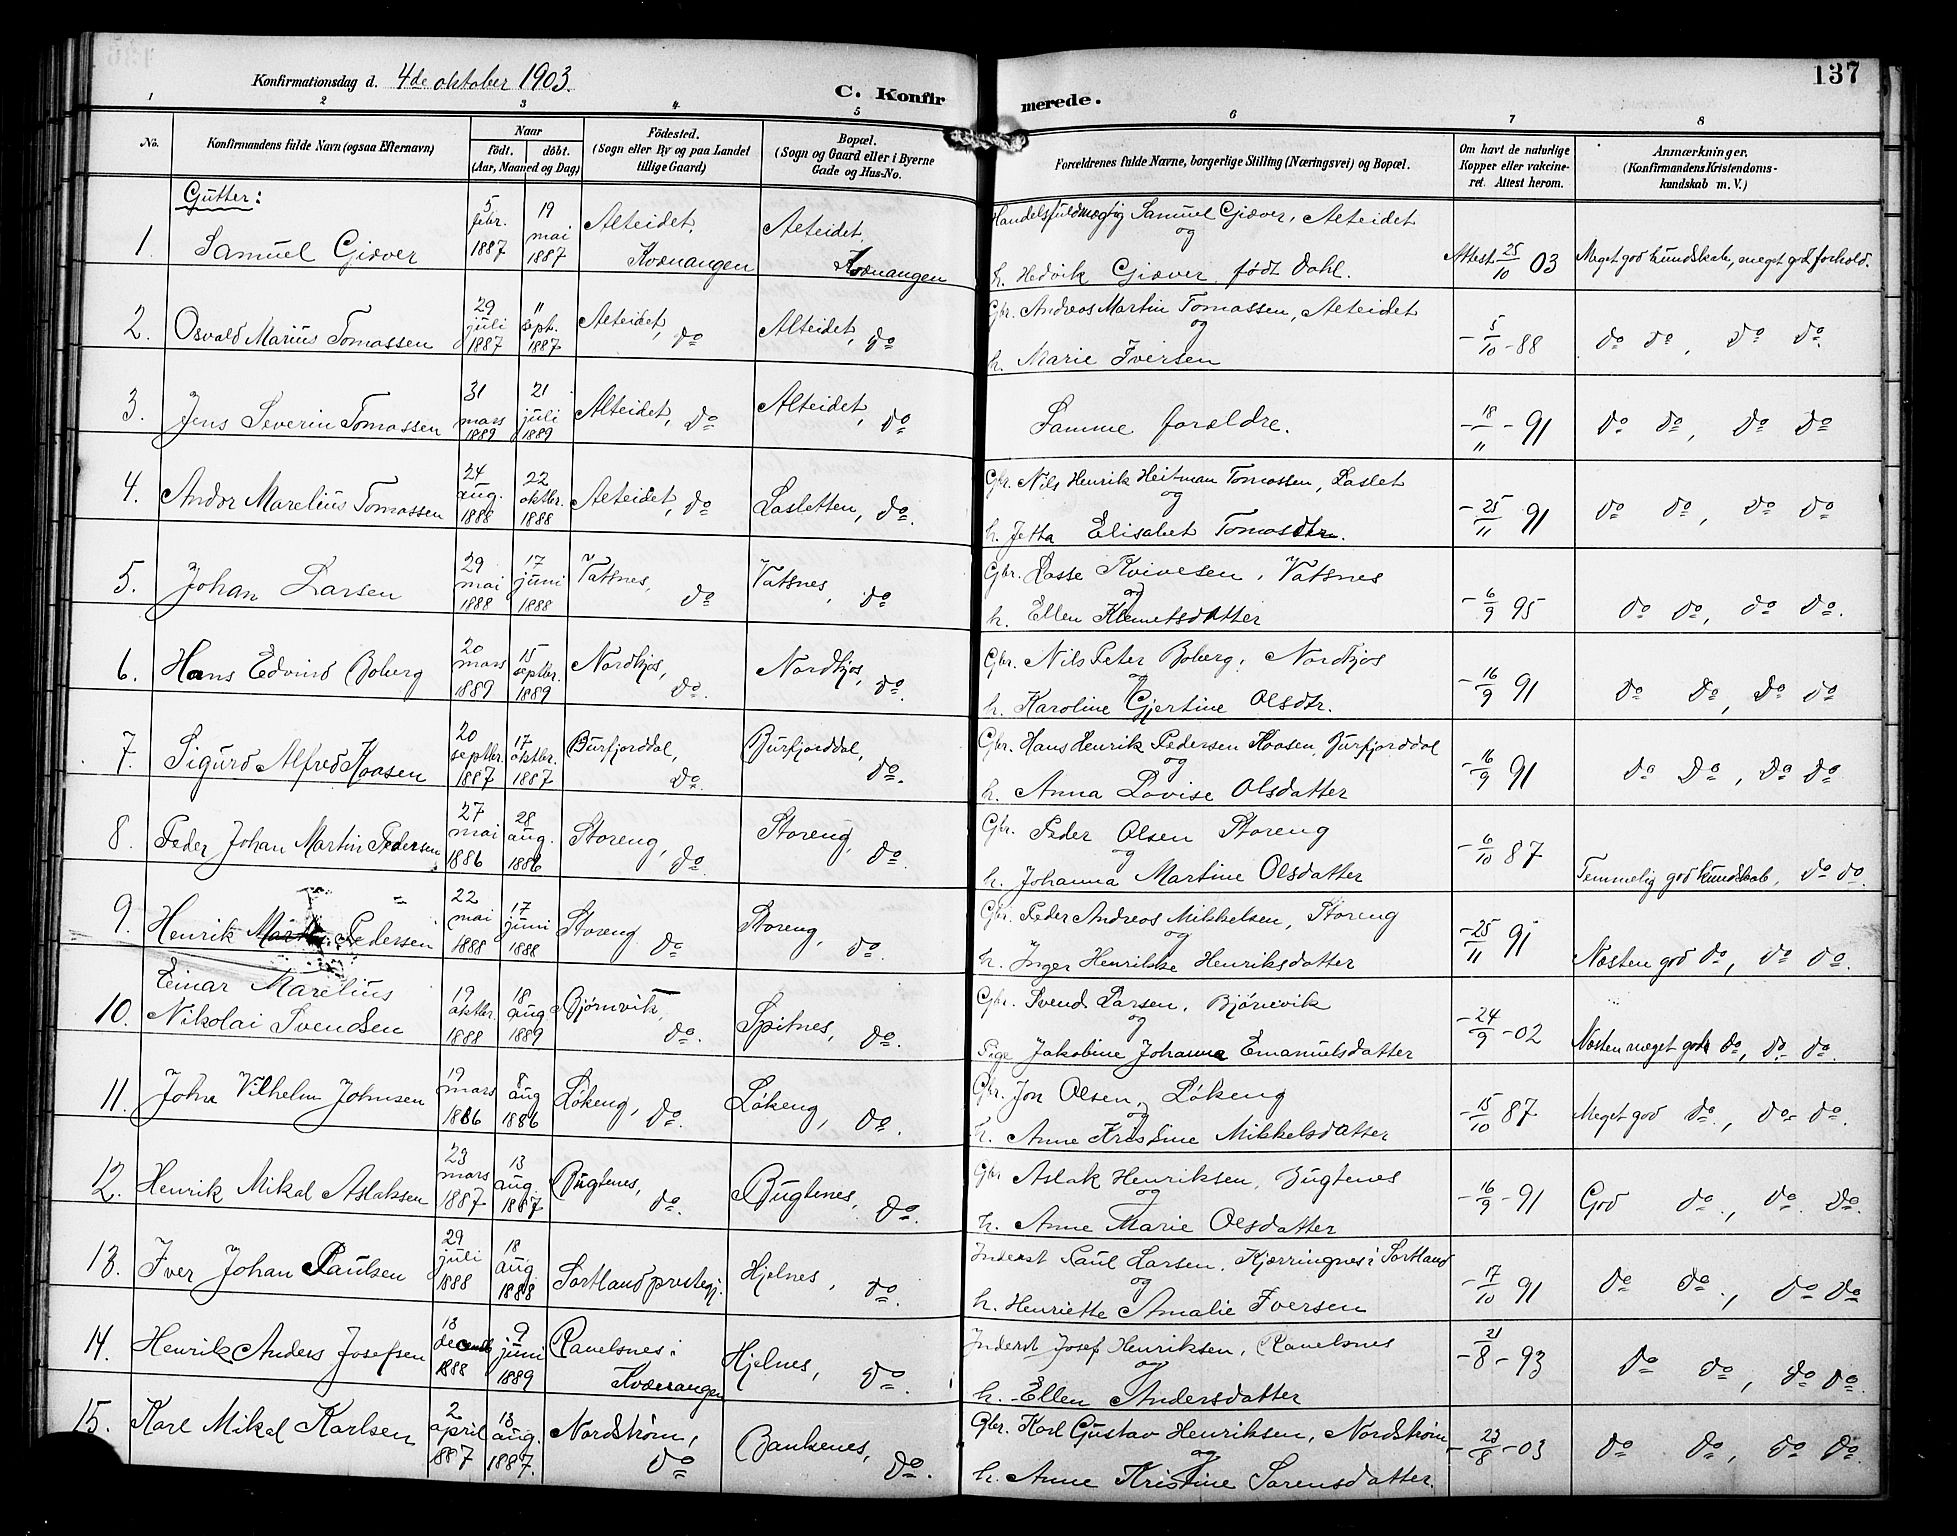 137
Konfirmationsdag d. 4de oktober 1903.
C. Konfirmerede.
1 2 3 4. 5 6 7 8
No.
Konfirmandens fulde Navn (ogsaa Efternavn)
Naar
født. døbt.
(Aar, Maaned og Dag)
Fødested.
(Sogn eller By og paa Landet
tillige Gaard)
Bopæl.
(Sogn og Gaard eller i Byerne
Gade og Hus-No.
Forældrenes fulde Navne, borgerlige Stilling (Næringsvei) og Bopæl.
Om havt de naturlige
Kopper eller vakcine-
ret. Attest herom.
Anmærkninger.
(Konfirmandens Kristendoms-
kundskab m. V.)
Gutter:
1. Samuel Giæver 5 febr. 1887 19 mai 1887 Alteidet, Kvænangen Alteidet, Kvænangen Handelsfuldmægtig Samuel Giæver, Alteidet og h. Hedvik Giæver født Dahl. Attest 25/10 03 Meget god kundskab, meget god forhold.
2. Osvald Marius Tomassen 29 juli 1887 11 sept. 1887 Alteidet, do Alteidet, do Gbr. Andreas Martin Tomassen, Alteidet og h. Marie Iversen - 5/10 - 88 do do, do do.
3. Jens Severin Tomassen 31 mars 1889 21 juli 1889 Alteidet, do Alteidet, do Samme forældre. - 18/11 - 91 do do, do do
4. Andor Marelius Tomassen 24 aug. 1888 22 oktbr. 1888 Alteidet, do Lasletten, do. Gbr. Nils Henrik Heitman Tomassen, Laslet og h. Jetta Elisabet Tomasdtr. - 25/11 91 do do, do do
5. Johan Larsen 29 mai 1888 17 juni 1888 Vatsnes, do Vatsnes, do Gbr. Lasse Kvivesen, Vatsnes og h. Ellen Klemetsdatter - 6/9 95 do do, do do.
6. Hans Edvind Boberg 20 mars 1889 15 septbr. 1889 Nordkjos, do. Nordkjos, do. Gbr. Nils Peter Boberg, Nordkjos og h. Karoline Gjertine Olsdtr. - 16/9 91 do do, do do
7. Sigurd Alfred Kaasen 20 septbr. 1887 17 oktbr. 1887 Burfjorddal, do. Burfjorddal, do. Gbr. Hans Henrik Pedersen Kaasen, Burfjorddal og h. Anna Lovise Olsdatter - 16/9 91 do do, do do
8. Peder Johan Martin Pedersen 27 mai 1886 28 aug. 1886 Storeng, do. Storeng, do. Gbr. Peder Olsen Storeng og h. Johanna Martine Olsdatter - 6/10 87 Temmelig god kundskab, do do.
9. Henrik Pedersen 22 mai 1888 17 juni 1888 Storeng do Storeng, do. Gbr. Peder Andreas Mikkelsen, Storeng og h. Inger Henrikke Henriksdatter - 25/11 91 Næsten god do, do do.
10. Einar Marelius Nikolai Svendsen 19 oktbr. 1888 18 aug 1889 Bjørnvik, do. Spitnes, do. Gbr. Svend Larsen, Bjørnvik og Pige Jakobine Johanna Emanuelsdatter - 24/9 - 02 Næsten meget god do, do do.
11. John Vilhelm Johnsen 19 mars 1886 8 aug 1886 Løkeng, do. Løkeng, do. Gbr. Jon Olsen, Løkeng og h. Anne Kristine Mikkelsdatter - 15/10 87 Meget god do, do do.
12. Henrik Mikal Aslaksen 23 mars 1887 13 aug. 1887 Bugtenes, do. Bugtenes, do. Gbr Aslak Henriksen, Bugtenes og h. Anne Marie Olsdatter - 16/9 - 91 God do, do do.
13. Iver Johan Paulsen 29 juli 1888 18 aug 1888 Sortland prestegj. Hjelnes, do. Inderst Paul Larsen, Kjærringnes i Sortland og h. Henriette Amalie Iversen - 17/10 91 do do, do do
14. Henrik Anders Josefsen 18 decemb 1888 9 juni 1889 Ravelsnes i Kvænangen Hjelnes, do. Inderst Josef Henriksen, Ravelsnes og h. Ellen Andersdatter - 21/8 - 93 do do, do do.
15. Karl Mikal Karlsen 2 april 1887 13 aug. 1887. Nordstrøm, do Bankenes, do. Gbr. Karl Gustav Henriksen, Nordstrøm og h. Anne Kristine Sørensdatter. - 23/8 - 03 do do, do do.